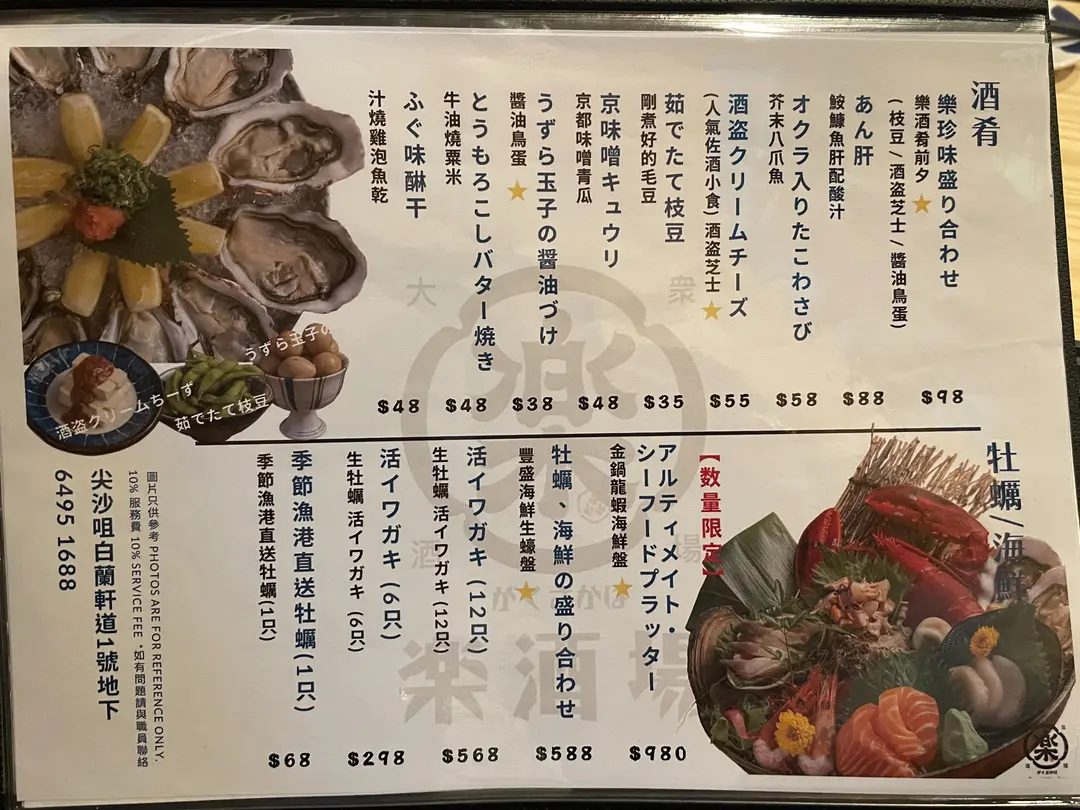 酒肴
樂珍味盛り合わせ
樂酒肴前夕
(枝豆/酒盗芝士/醬油鳥蛋)
$98
あん肝
鮟鱇魚肝配酸汁
$88
オクラ入りたこわさび
芥末八爪魚
$58
酒盗クリームチーズ
(人氣佐酒小食)酒盗芝士
$55
茹でたて枝豆
剛煮好的毛豆
$35
京味噌キュウリ
京都味噌青瓜
$48
うずら玉子の醤油づけ
醬油鳥蛋
$38
とうもろこしバター焼き
牛油燒粟米
$48
ふぐ味醂干
汁燒雞泡魚乾
$48
うずら玉子の
酒盗クリームちーず
茹でたて枝豆
大衆
酒場
楽
がくさかば
楽酒場
牡蠣/海鮮
【数量限定】
アルティメイト・
シーフードプラッター
金鍋龍蝦海鮮盤
$980
牡蠣、海鮮の盛り合わせ
豐盛海鮮生蠔盤
$588
活イワガキ(12只)
生牡蠣 活イワガキ(12只)
$568
活イワガキ(6只)
生牡蠣 活イワガキ(6只)
$298
季節漁港直送牡蠣(1只)
季節漁港直送牡蠣(1只)
$68
圖片只供參考 PHOTOS ARE FOR REFERENCE ONLY.
10% 服務費 10% SERVICE FEE・如有問題請與職員聯絡
尖沙咀白蘭軒道1號地下
6495 1688
楽